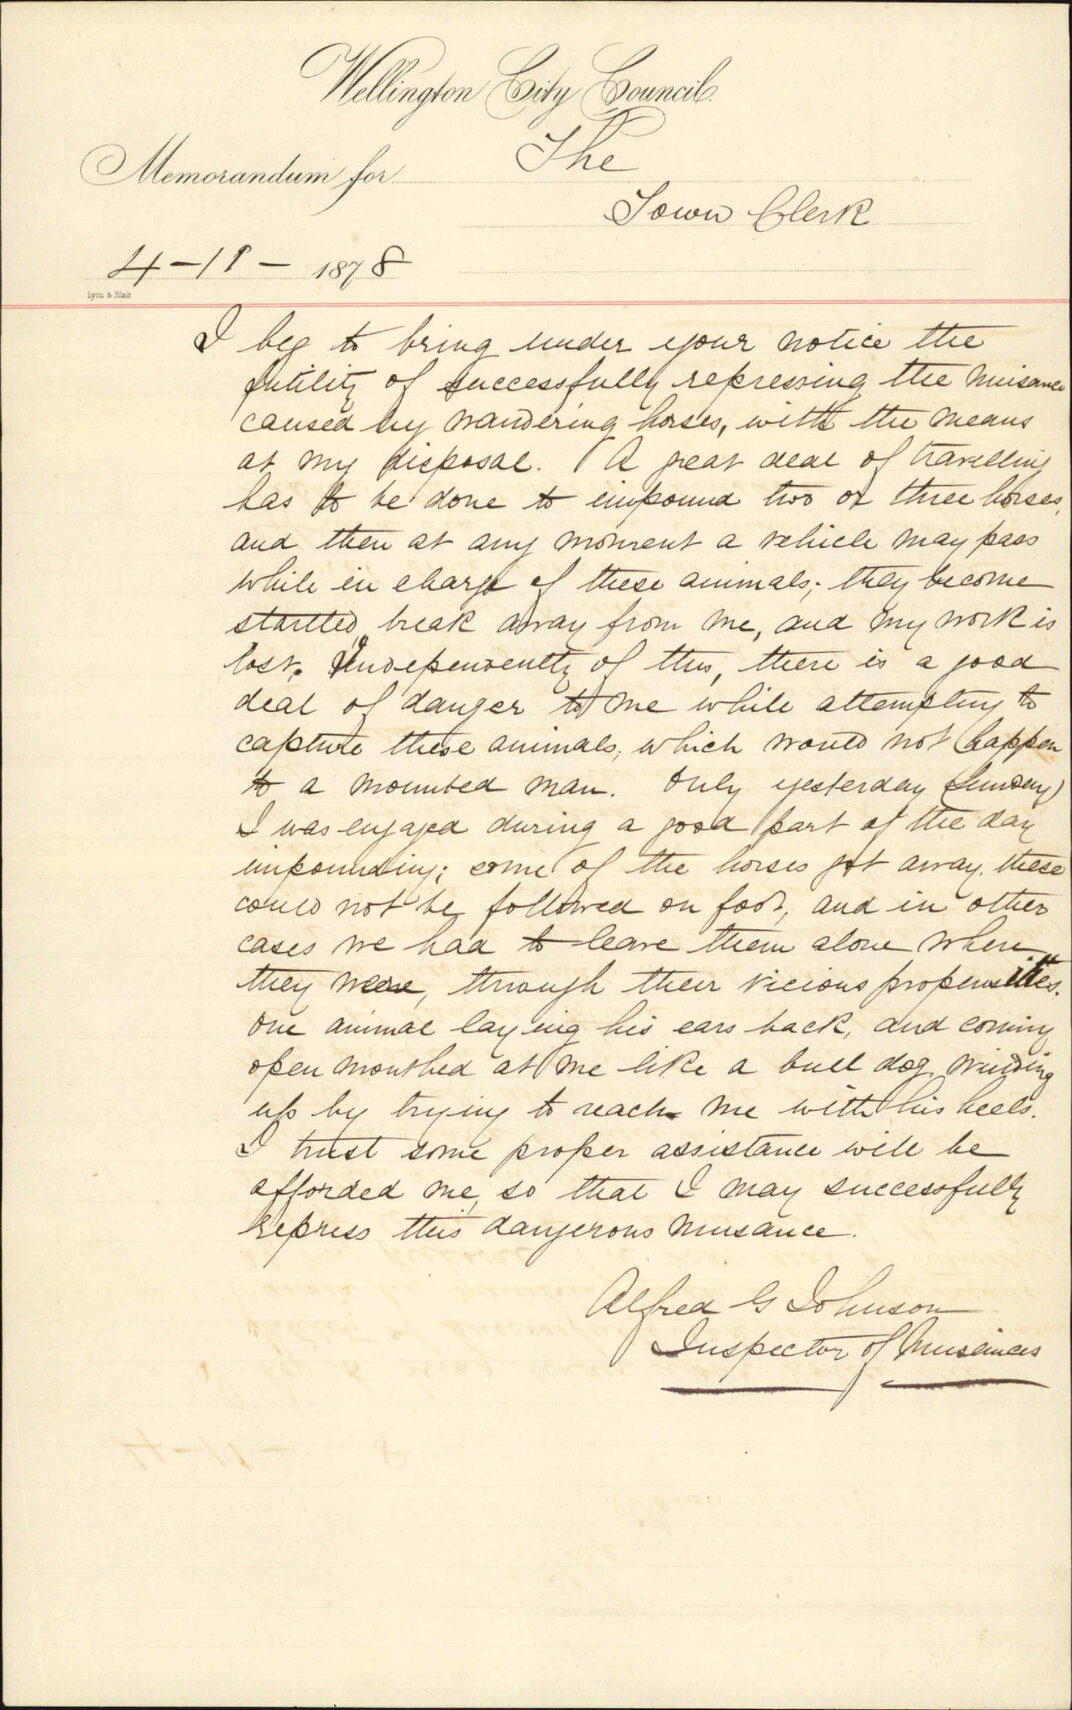 Wellington City Council.
Memorandum for The
Town Clerk
4-11-1878
Lyon & Blair
I beg to bring under your notice the
futility of successfully repressing the nuisance
caused by wandering horses, with the means
at my disposal. A great deal of travelling
has to be done to impound two or three horses,
and then at any moment a vehicle may pass
while in charge of these animals; they become
startled, break away from me, and my work is
lost. Independently of this, there is a good
deal of danger to me while attempting to
capture these animals, which would not happen
to a mounted man. Only yesterday (Sunday)
I was engaged during a good part of the day
impounding; some of the horses got away, these
could not be followed on foot, and in other
cases we had to leave them alone where
they were, through their vicious propensities.
One animal laying his ears back, and coming
open mouthed at me like a bull dog, winding
up by trying to reach me with his heels.
I trust some proper assistance will be
afforded me, so that I may successfully
repress this dangerous nuisance.
Alfred G Johnson
Inspector of Nuisances